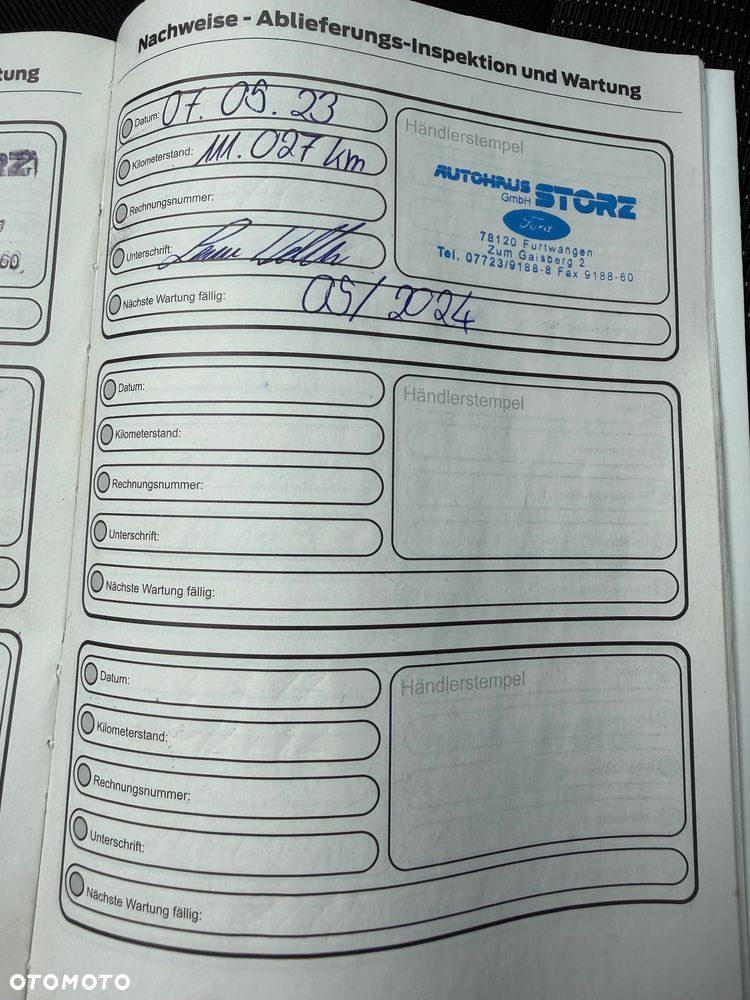 tung
RZ
60
Nachweise - Ablieferungs-Inspektion und Wartung
Datum: 07. 05. 23
Kilometerstand: 111.027 km
Rechnungsnummer:
Unterschrift:
Nächste Wartung fällig: 05/2024
Händlerstempel
AUTOHAUS STORZ
GmbH
Ford
78120 Furtwangen
Zum Gaisberg 2
Tel. 07723/9188-8 Fax 9188-60
Datum:
Kilometerstand:
Rechnungsnummer:
Unterschrift:
Nächste Wartung fällig:
Händlerstempel
Datum:
Kilometerstand:
Rechnungsnummer:
Unterschrift:
Nächste Wartung fällig:
Händlerstempel
OTOMOTO